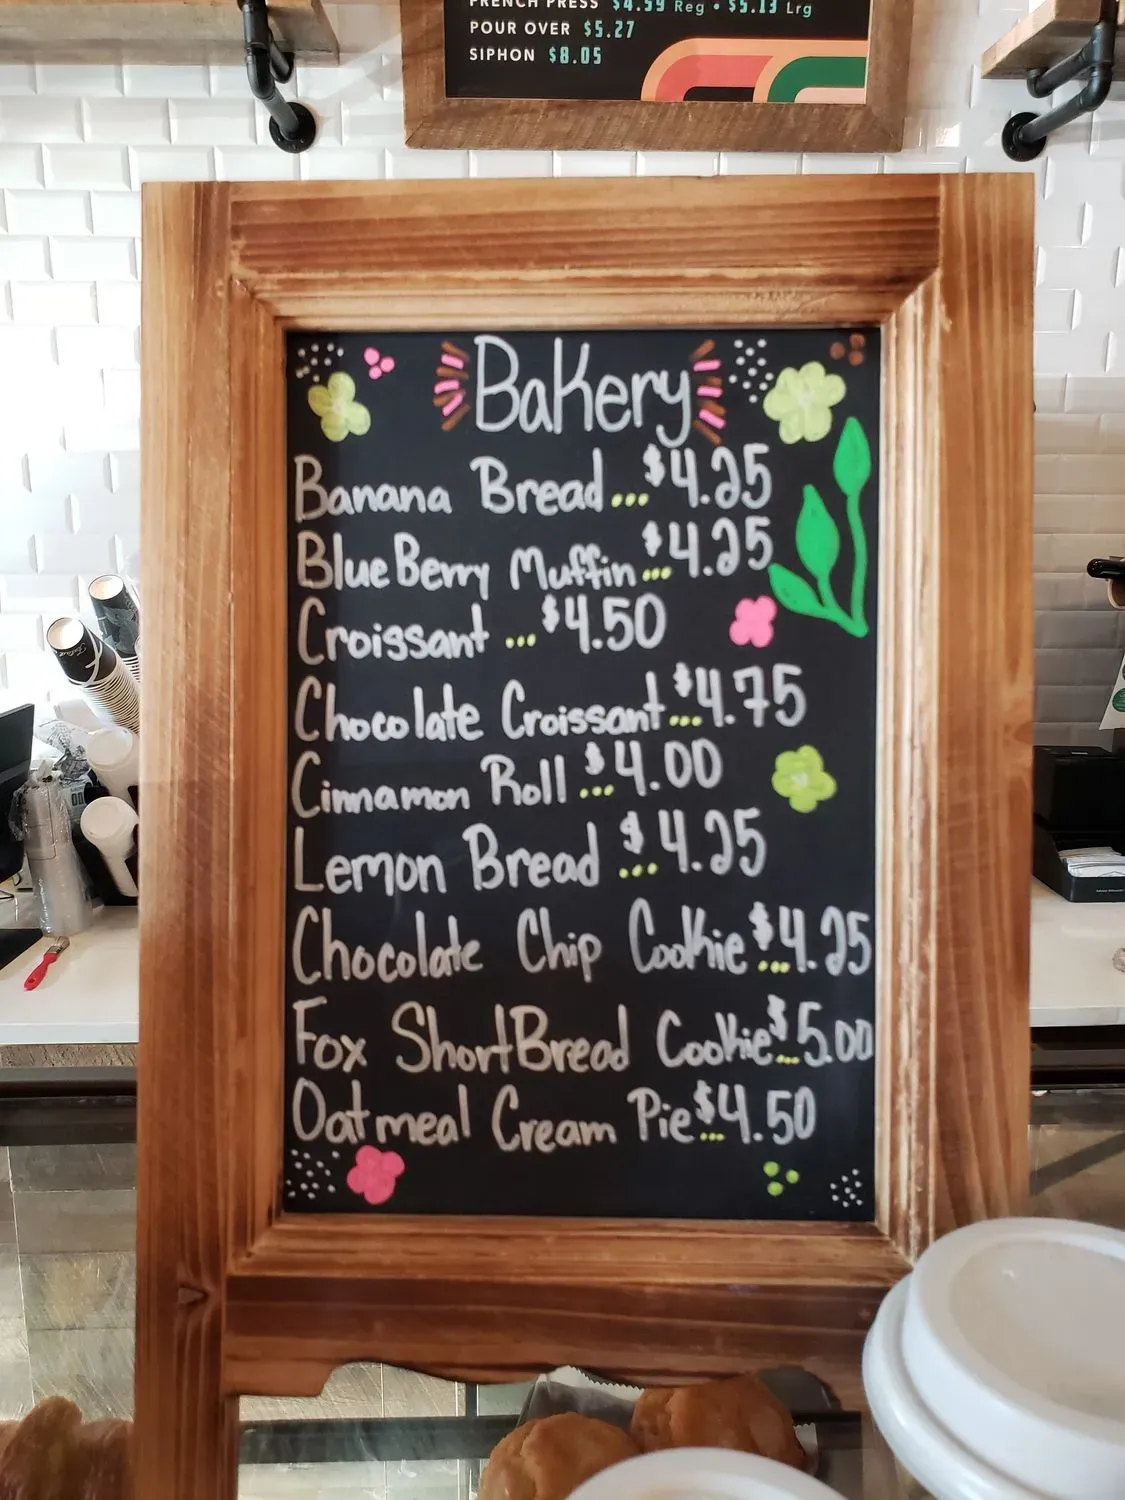 FRENCH PRESS $4.59 Reg • $5.13 Lrg
POUR OVER $5.27
SIPHON $8.05
Bakery
Banana Bread...$4.25
BlueBerry Muffin...$4.25
Croissant ...$4.50
Chocolate Croissant...$4.75
Cinnamon Roll...$4.00
Lemon Bread ...$4.25
Chocolate Chip Cookie...$4.25
Fox ShortBread Cookie...$5.00
Oatmeal Cream Pie...$4.50